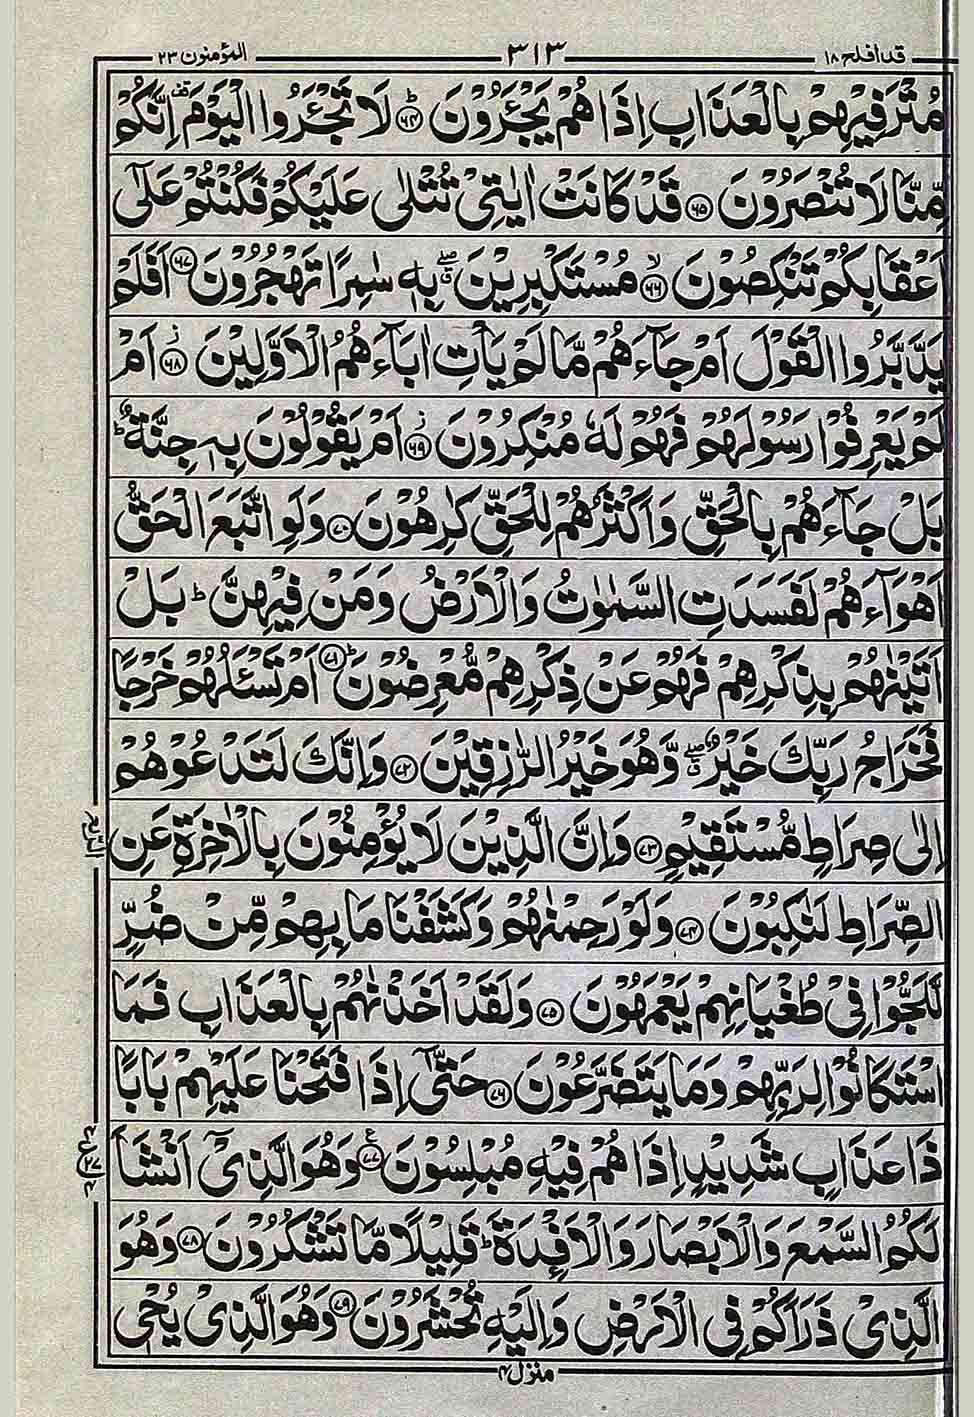 قد افلح ۱۸ ۳۱۳ المؤمنون ۲۳
مُتْرَفِيْهِمْ بِالْعَذَابِ اِذَا هُمْ يَجْـَٔرُوْنَ ؕ‏﴿۶۴﴾ لَا تَجْـَٔرُوا الْيَوْمَ قف اِنَّكُمْ
مِّنَّا لَا تُنْصَرُوْنَ ﴿۶۵﴾ قَدْ كَانَتْ اٰيٰتِىْ تُتْلٰى عَلَيْكُمْ فَكُنْتُمْ عَلٰٓى
اَعْقَابِكُمْ تَنْكِصُوْنَ ۙ‏﴿۶۶﴾ مُسْتَكْبِرِيْنَ ۖق بِهٖ سٰمِرًا تَهْجُرُوْنَ ﴿۶۷﴾ اَفَلَمْ
يَدَّبَّرُوا الْقَوْلَ اَمْ جَآءَهُمْ مَّا لَمْ يَاْتِ اٰبَآءَهُمُ الْاَوَّلِيْنَ ز ﴿۶۸﴾ اَمْ
لَمْ يَعْرِفُوْا رَسُوْلَهُمْ فَهُمْ لَهٗ مُنْكِرُوْنَ ز ﴿۶۹﴾ اَمْ يَقُوْلُوْنَ بِهٖ جِنَّةٌ ؕ
بَلْ جَآءَهُمْ بِالْحَقِّ وَاَكْثَرُهُمْ لِلْحَقِّ كٰرِهُوْنَ ﴿۷۰﴾ وَلَوِ اتَّبَعَ الْحَقُّ
اَهْوَآءَهُمْ لَفَسَدَتِ السَّمٰوٰتُ وَالْاَرْضُ وَمَنْ فِيْهِنَّ ؕ بَلْ
اَتَيْنٰهُمْ بِذِكْرِهِمْ فَهُمْ عَنْ ذِكْرِهِمْ مُّعْرِضُوْنَ ؕ ﴿۷۱﴾ اَمْ تَسْـَٔلُهُمْ خَرْجًا
فَخَرَاجُ رَبِّكَ خَيْرٌ ۖق وَّهُوَ خَيْرُ الرّٰزِقِيْنَ ﴿۷۲﴾ وَاِنَّكَ لَتَدْعُوْهُمْ
اِلٰى صِرَاطٍ مُّسْتَقِيْمٍ ﴿۷۳﴾ وَاِنَّ الَّذِيْنَ لَا يُؤْمِنُوْنَ بِالْاٰخِرَةِ عَنِ
الصِّرَاطِ لَنٰكِبُوْنَ ﴿۷۴﴾ وَلَوْ رَحِمْنٰهُمْ وَكَشَفْنَا مَا بِهِمْ مِّنْ ضُرٍّ
لَّلَجُّوْا فِىْ طُغْيَانِهِمْ يَعْمَهُوْنَ ﴿۷۵﴾ وَلَقَدْ اَخَذْنٰهُمْ بِالْعَذَابِ فَمَا
اسْتَكَانُوْا لِرَبِّهِمْ وَمَا يَتَضَرَّعُوْنَ ﴿۷۶﴾ حَتّٰٓى اِذَا فَتَحْنَا عَلَيْهِمْ بَابًا
ذَا عَذَابٍ شَدِيْدٍ اِذَا هُمْ فِيْهِ مُبْلِسُوْنَ ع ﴿۷۷﴾ وَهُوَ الَّذِىْٓ اَنْشَاَ
لَكُمُ السَّمْعَ وَالْاَبْصَارَ وَالْاَفْـِٕدَةَ ؕ قَلِيْلًا مَّا تَشْكُرُوْنَ ﴿۷۸﴾ وَهُوَ
الَّذِىْ ذَرَاَكُمْ فِى الْاَرْضِ وَاِلَيْهِ تُحْشَرُوْنَ ﴿۷۹﴾ وَهُوَ الَّذِىْ يُحْىٖ
منزل ۴